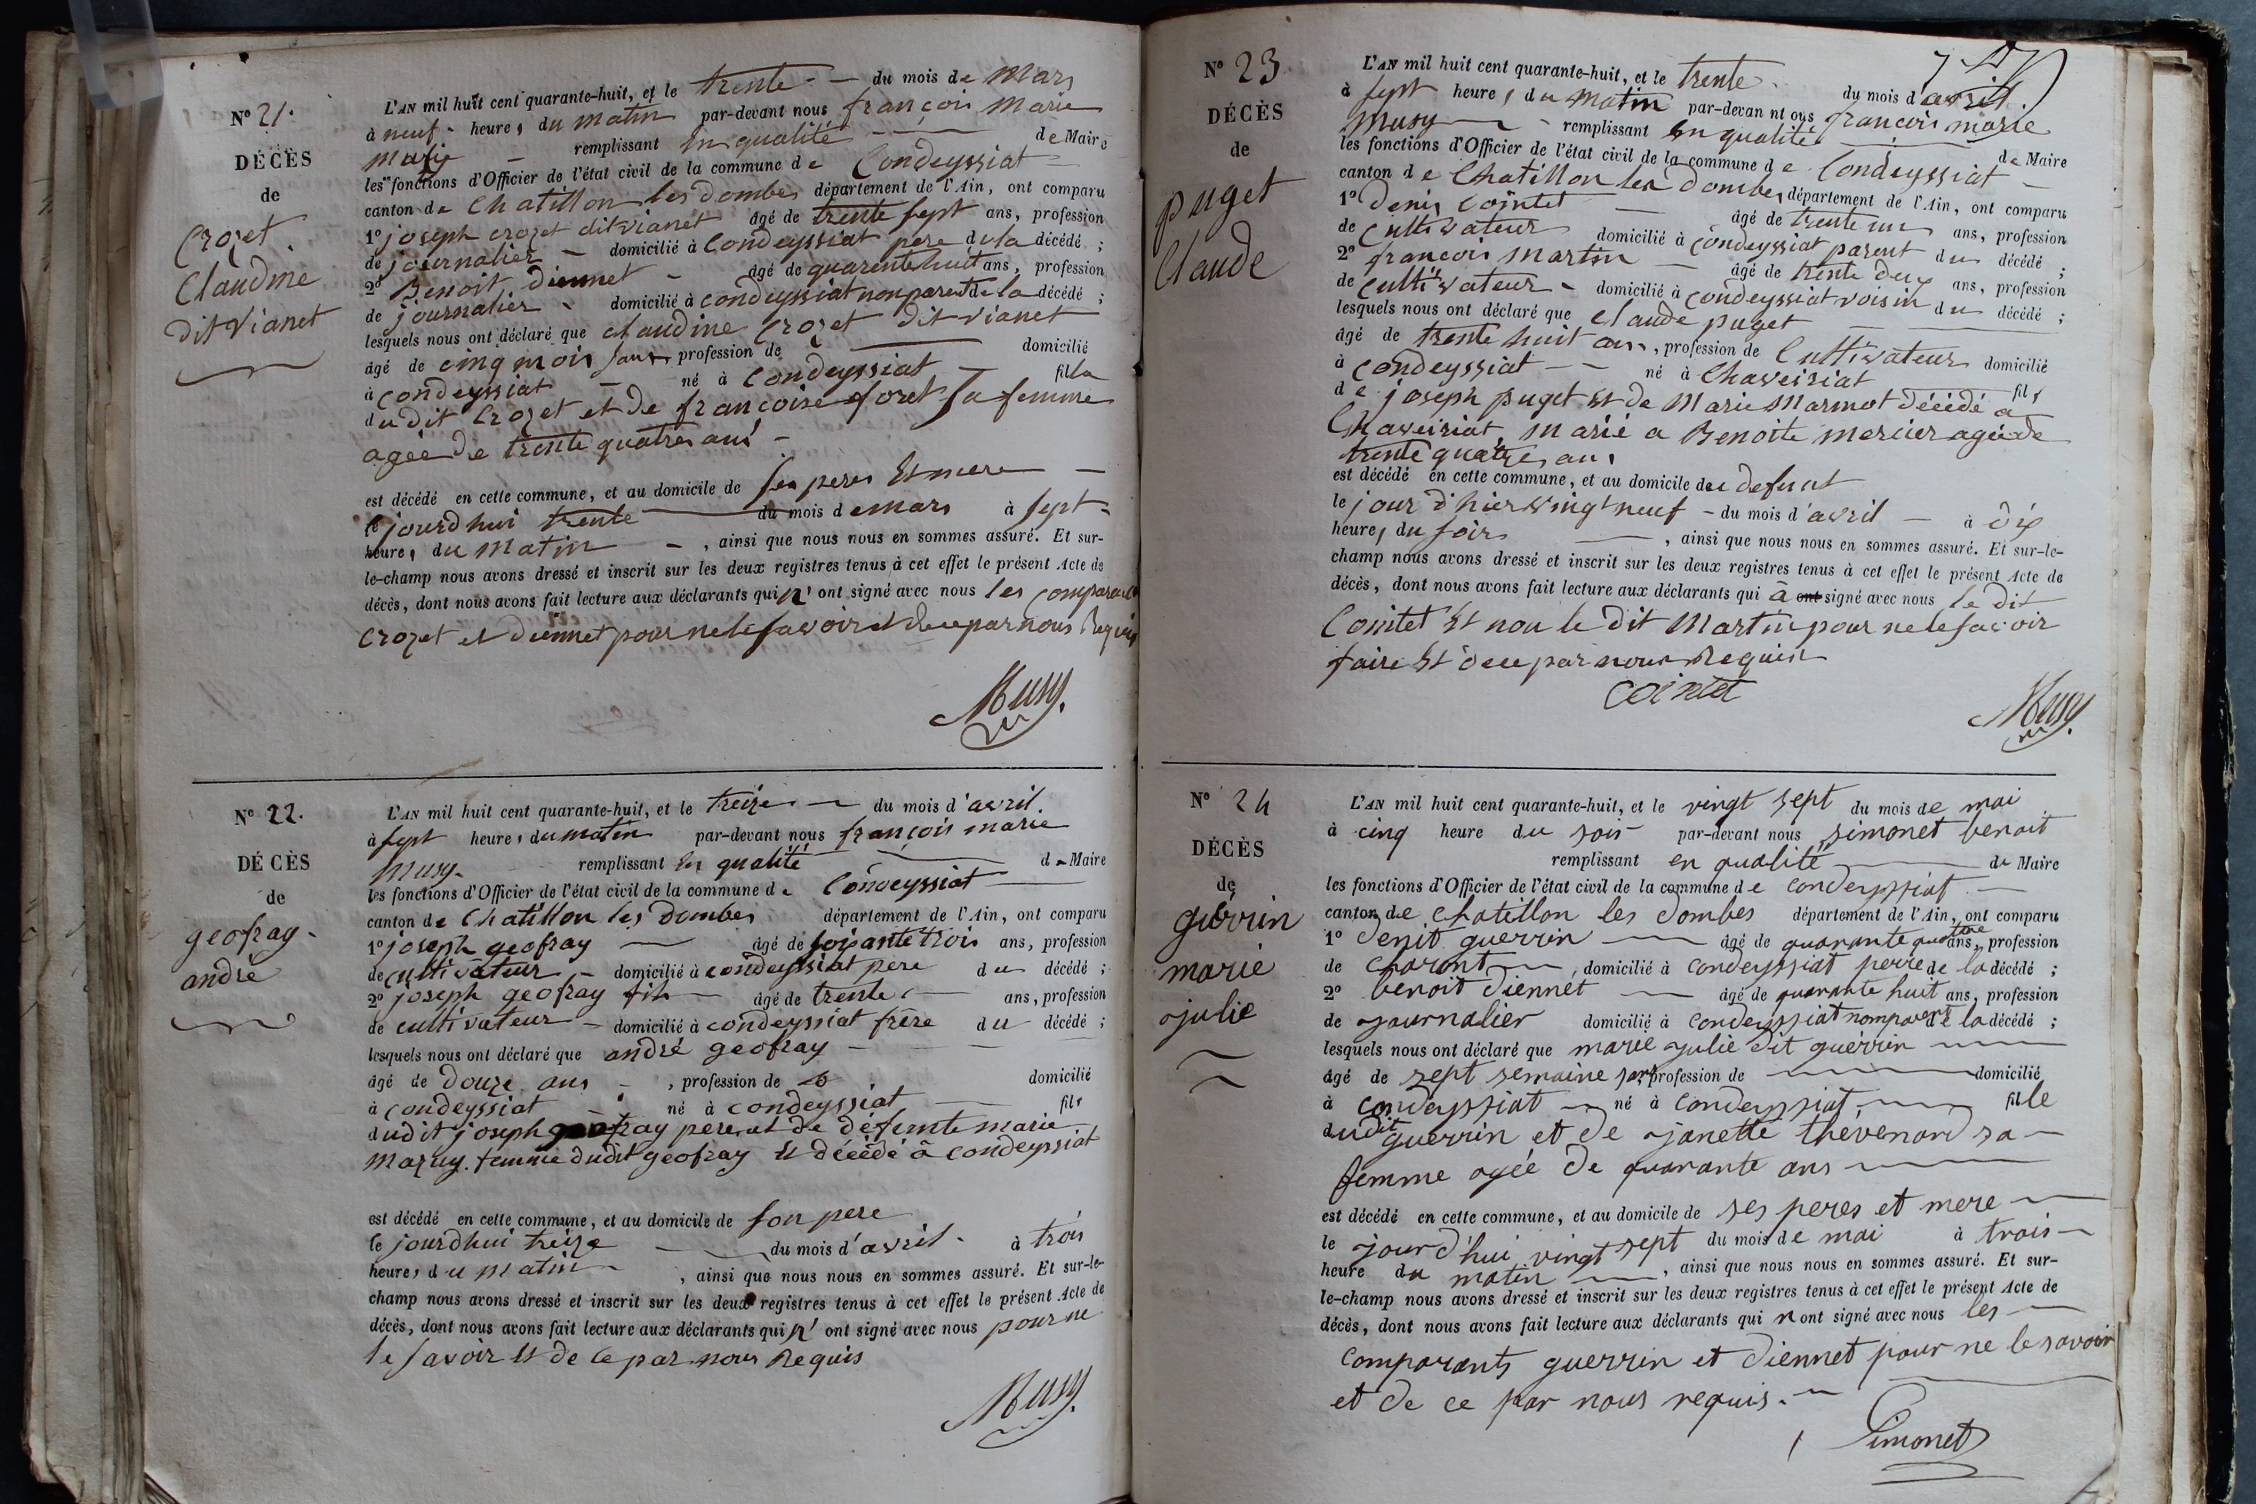 N° 21.
DÉCÈS
de
Crozet
Claudine
dit vianet
L'AN mil huit cent quarante-huit, et le trente du mois de Mars
à neuf heures du matin par-devant nous françois Marie
Musy remplissant en qualité de Maire
les fonctions d'Officier de l'état civil de la commune de Condeyssiat
canton de Chatillon les Dombes département de l'Ain, ont comparu
1° joseph crozet dit vianet âgé de trente sept ans, profession
de journalier domicilié à Condeyssiat pere de la décédé ;
2° Benoit diennet âgé de quarente huit ans, profession
de journalier domicilié à condeyssiat non parent de la décédé ;
lesquels nous ont déclaré que claudine Crozet dit vianet
âgé de cinq mois sans profession de domicilié
à condeyssiat né à Condeyssiat filla
du dit Crozet et de françoise foret sa femme
agée de trente quatres ans
est décédé en cette commune, et au domicile de ses peres Et mere
le jourdhui trente du mois de mars à sept
heures du Matin , ainsi que nous nous en sommes assuré. Et sur-
le-champ nous avons dressé et inscrit sur les deux registres tenus à cet effet le présent Acte de
décès, dont nous avons fait lecture aux déclarants qui n' ont signé avec nous les comparants
Crozet et diennet pour ne le savoir et de ce par nous Requis
Musy.
N° 22.
DÉCÈS
de
geofray
andré
L'AN mil huit cent quarante-huit, et le treize du mois d'avril.
à sept heures du matin par-devant nous françois marie
Musy. remplissant en qualité de Maire
les fonctions d'Officier de l'état civil de la commune de Condeyssiat
canton de Chatillon les Dombes département de l'Ain, ont comparu
1° joseph geofray âgé de soixante trois ans, profession
de cultivateur domicilié à condeyssiat pere du décédé ;
2° joseph geofray fils âgé de trente ans, profession
de cultivateur domicilié à condeyssiat frère du décédé ;
lesquels nous ont déclaré que andré geofray
âgé de douze ans , profession de domicilié
à condeyssiat né à condeyssiat fils
dudit joseph geofray pere, et de défunte marie
Mazuy. femme dudit geofray Et décédé à Condeyssiat
est décédé en cette commune, et au domicile de son pere
le jourdhui treize du mois d'avril. à trois
heures du Matin , ainsi que nous nous en sommes assuré. Et sur-le-
champ nous avons dressé et inscrit sur les deux registres tenus à cet effet le présent Acte de
décès, dont nous avons fait lecture aux déclarants qui n' ont signé avec nous pour ne
le savoir Et de ce par nous Requis
Musy.
N° 23
DÉCÈS
de
puget
Claude
L'AN mil huit cent quarante-huit, et le trente du mois d'avril.
à sept heures du Matin par-devan nt ous françois marie
Musy remplissant En qualité de Maire
les fonctions d'Officier de l'état civil de la commune de Condeyssiat
canton de Chatillon les Dombes département de l'Ain, ont comparu
1° Denis Cointet âgé de trente un ans, profession
de Cultivateur domicilié à condeyssiat parent du décédé ;
2° francois martin âgé de trente deux ans, profession
de Cultivateur domicilié à Condeyssiat voisin du décédé ;
lesquels nous ont déclaré que Claude puget
âgé de trente huit ans, profession de Cultivateur domicilié
à condeyssiat né à Chaveiriat fils
de joseph puget Et de Marie Marmot décédé a
Chaveiriat, marié a Benoite mercier agée de
trente quatre ans
est décédé en cette commune, et au domicile du defunt
le jour d'hier Vingt neuf du mois d'avril à dix
heures du soir , ainsi que nous nous en sommes assuré. Et sur-le-
champ nous avons dressé et inscrit sur les deux registres tenus à cet effet le présent Acte de
décès, dont nous avons fait lecture aux déclarants qui à ont signé avec nous le dit
Cointet Et non le dit Martin pour ne le savoir
faire Et de ce par nous Requis
Cointet
Musy.
N° 24
DÉCÈS
de
guèrrin
marie
julie
L'AN mil huit cent quarante-huit, et le vingt sept du mois de mai
à cinq heure du soir par-devant nous simonet benoit
remplissant en qualité de Maire
les fonctions d'Officier de l'état civil de la commune de condeyssiat
canton de chatillon les dombes département de l'Ain, ont comparu
1° denit guerrin âgé de quarante quatre ans, profession
de charont , domicilié à condeyssiat perre de la décédé ;
2° benoit diennet âgé de quarante huit ans, profession
de journalier domicilié à condeyssiat nomparent de la décédé ;
lesquels nous ont déclaré que marie julie dit guerrin
âgé de sept semaine sans profession de domicilié
à condeyssiat né à condeyssiat fille
dudit guerrin et de janette thevenard sa
femme agée de quarante ans
est décédé en cette commune, et au domicile de ses peres et mere
le jour d'hui vingt sept du mois de mai à trois
heure du matin , ainsi que nous nous en sommes assuré. Et sur-
le-champ nous avons dressé et inscrit sur les deux registres tenus à cet effet le présent Acte de
décès, dont nous avons fait lecture aux déclarants qui n ont signé avec nous les
comparants guerrin et diennet pour ne le savoir
et de ce par nous requis.
Simonet